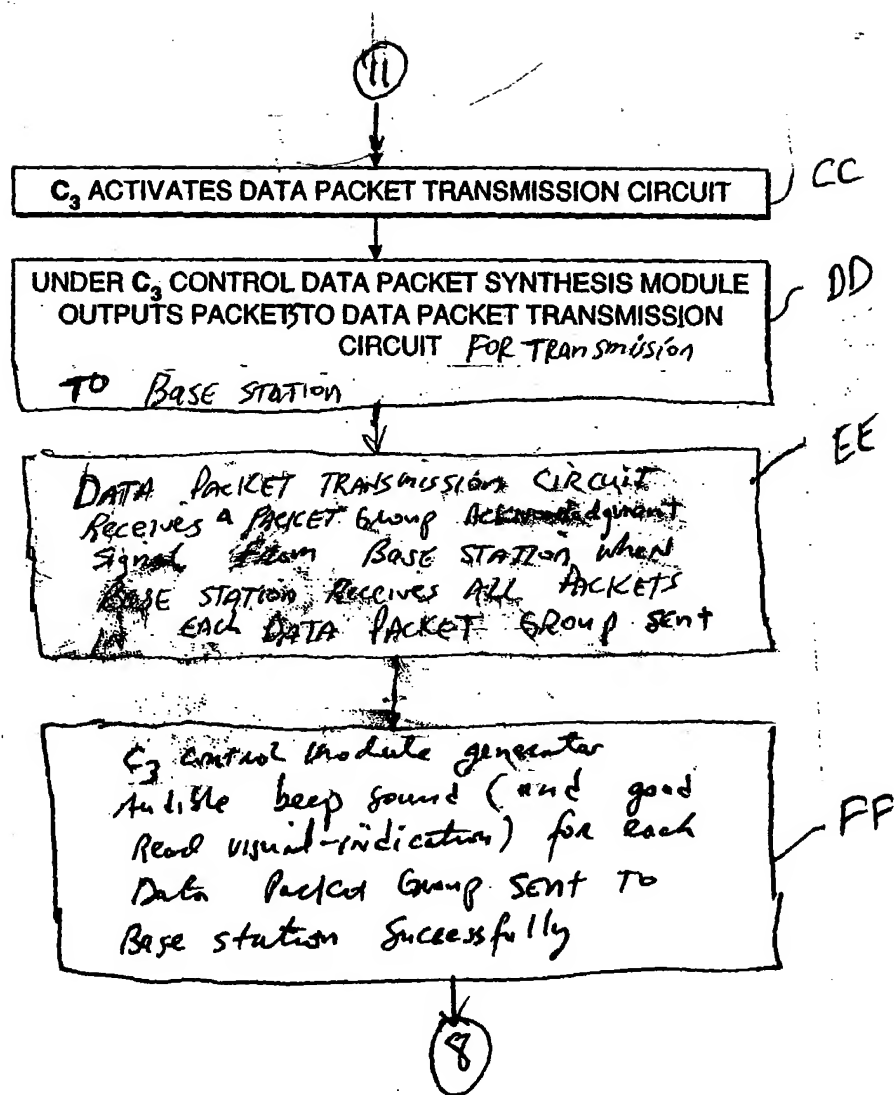 11
C₃ ACTIVATES DATA PACKET TRANSMISSION CIRCUIT
CC
UNDER C₃ CONTROL DATA PACKET SYNTHESIS MODULE
DD
OUTPUTS PACKETS TO DATA PACKET TRANSMISSION
CIRCUIT FOR TRANSMISSION
TO BASE STATION
EE
DATA PACKET TRANSMISSION CIRCUIT
Receives a PACKET Group Acknowledgment
Signal From BASE STATION when
BASE STATION Receives ALL PACKETS
EACH DATA PACKET GROUP SENT
C₃ control module generator
Audible beep sound (and good
Read visual-indication) for each
FF
Data Packet Group SENT TO
Base station Successfully
8